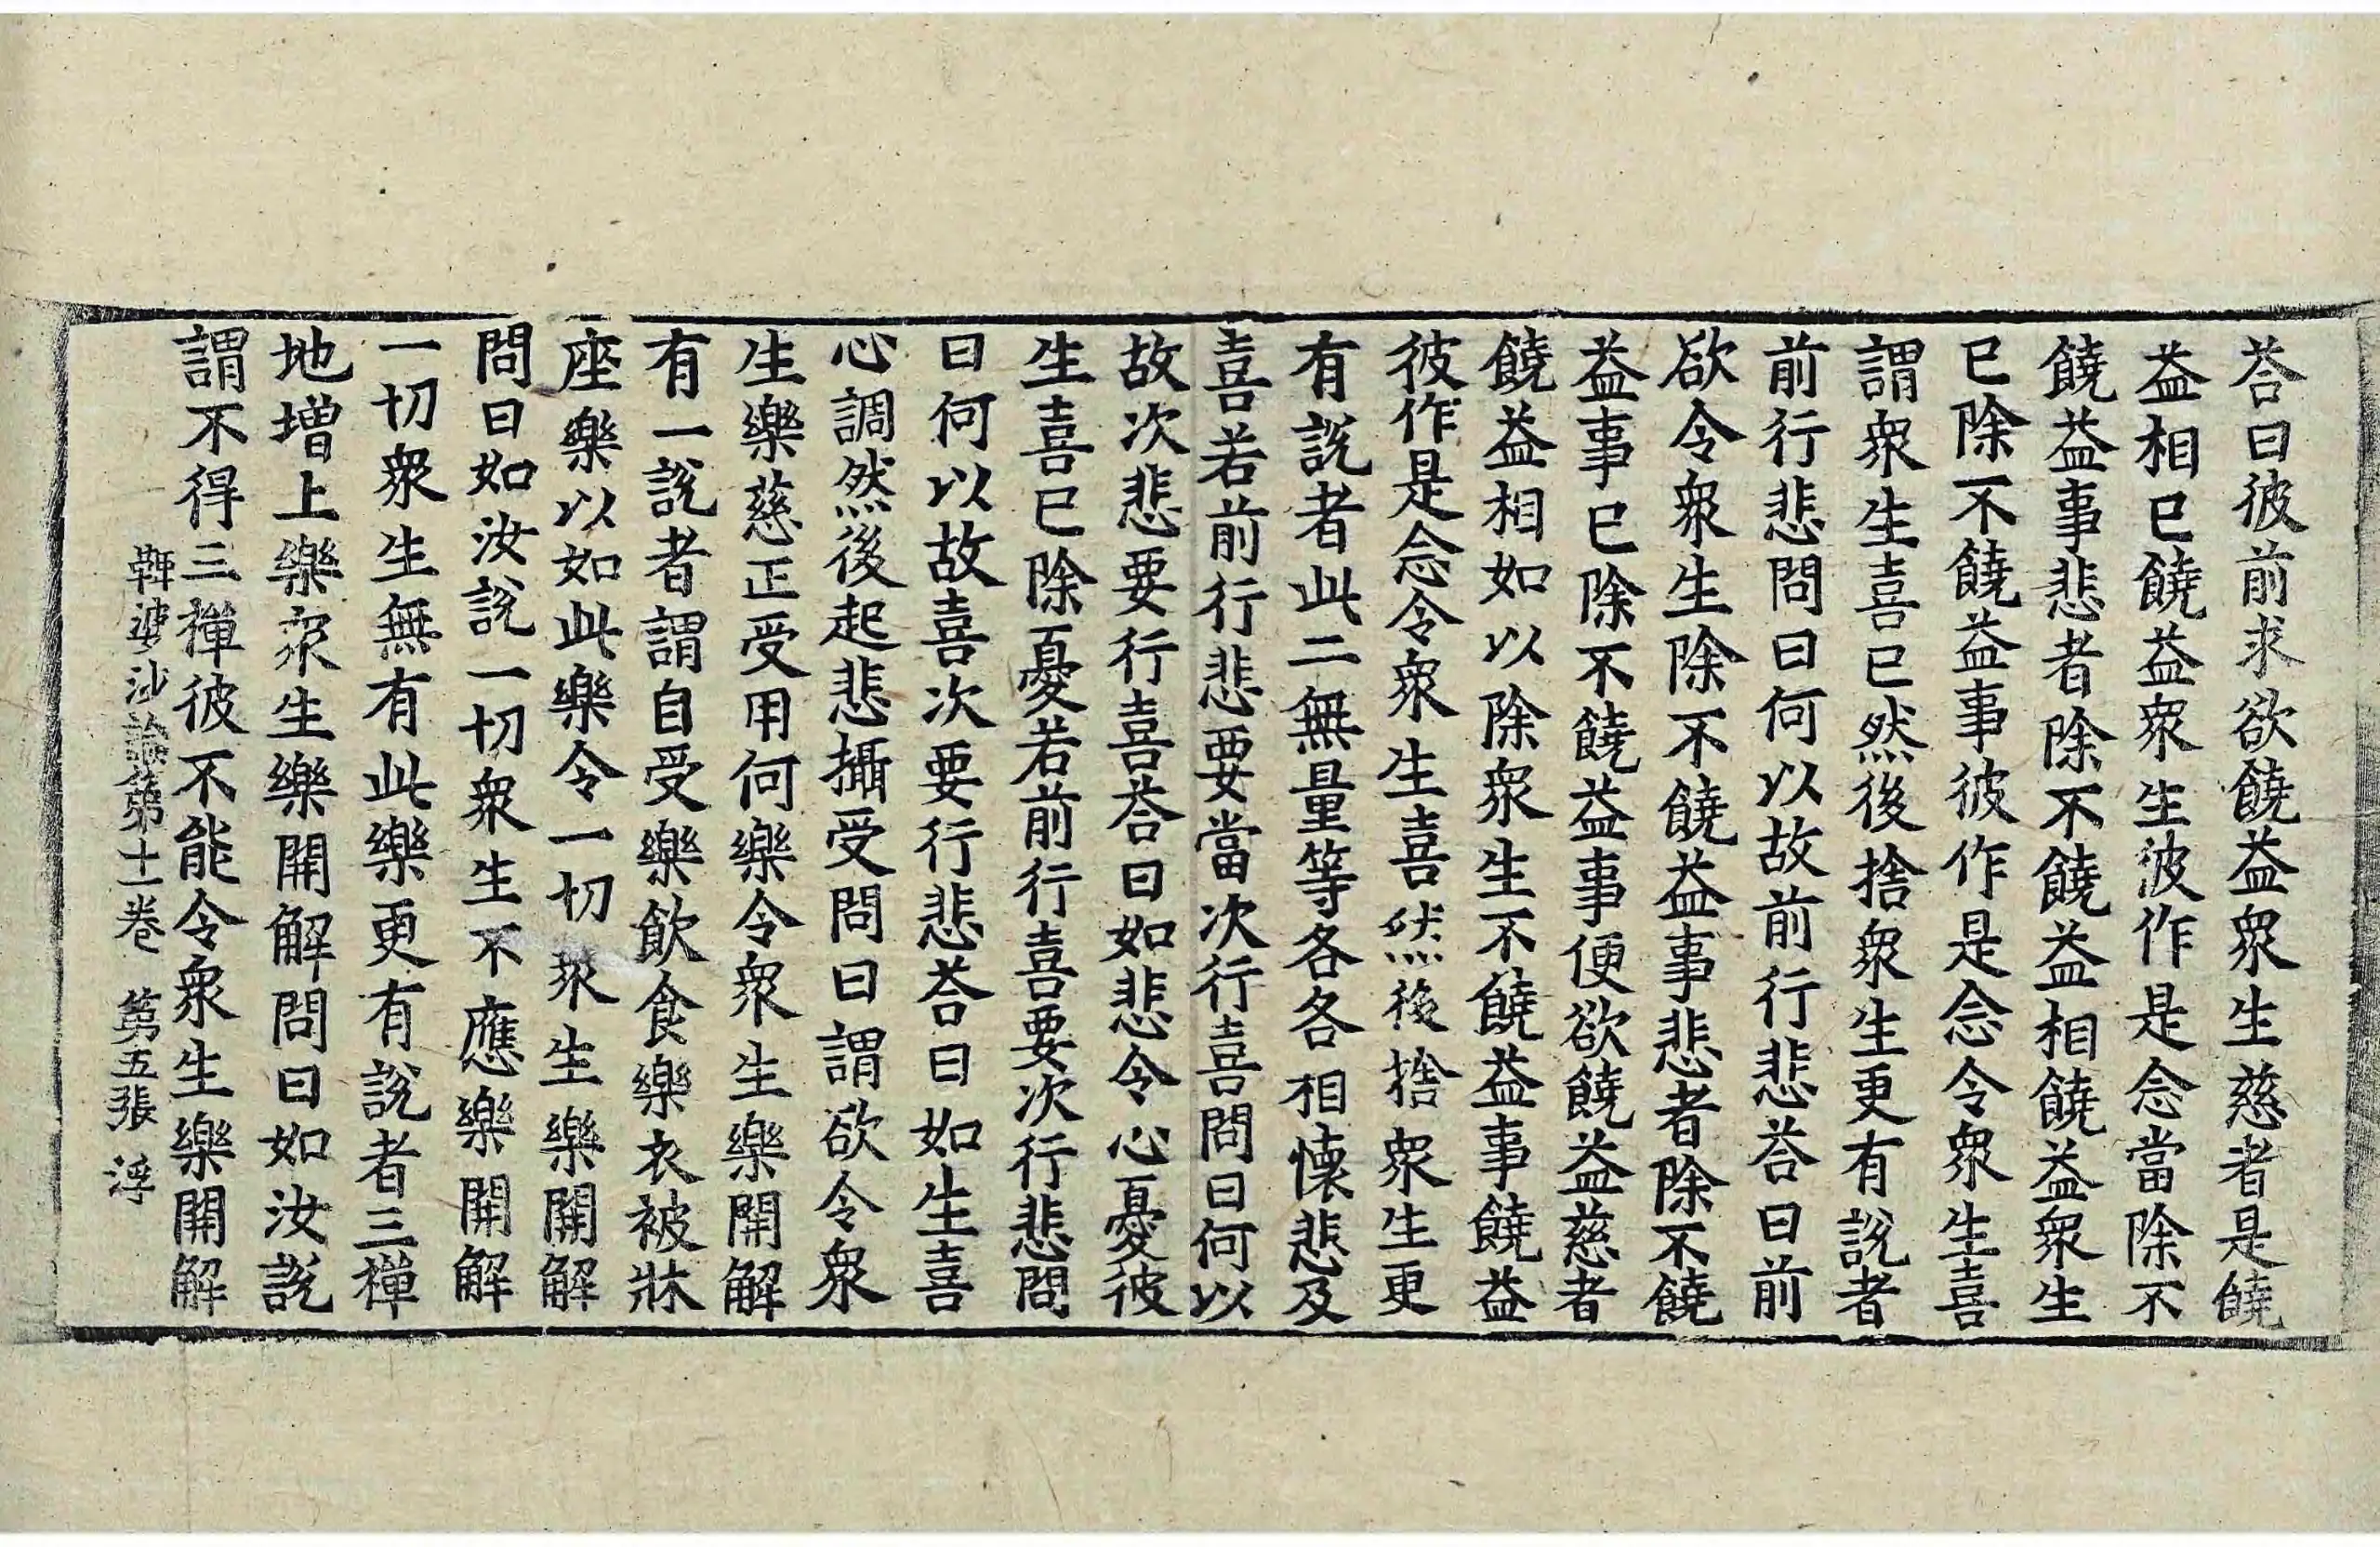 荅曰彼前求欲饒益衆生慈者是饒
益相已饒益衆生彼作是念當除不
饒益事悲者除不饒益相饒益衆生
已除不饒益事彼作是念令衆生喜
謂衆生喜已然後捨衆生更有説者
前行悲問曰何以故前行悲荅曰前
欲令衆生除不饒益事悲者除不饒
益事已除不饒益事便欲饒益慈者
饒益相如以除衆生不饒益事饒益
彼作是念令衆生喜然後捨衆生更
有説者此二無量等各各相懷悲及
喜若前行悲要當次行喜問曰何以
故次悲要行喜荅曰如悲令心憂彼
生喜已除憂若前行喜要次行悲問
曰何以故喜次要行悲荅曰如生喜
心調然後起悲攝受問曰謂欲令衆
生樂慈正受用何樂令衆生樂開解
有一説者謂自受樂飲食樂衣被牀
座樂以如此樂令一切衆生樂開解
問曰如汝説一切衆生不應樂開解
一切衆生無有此樂更有説者三禪
地增上樂衆生樂開解問曰如汝説
謂不得三禪彼不能令衆生樂開解
鞞婆沙論第十一卷 第五張 浮